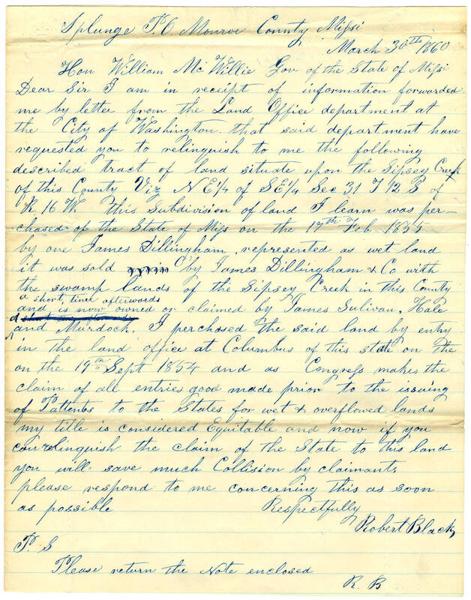 Splunge P.O Monroe County Missi
March 30th 1860
Hon William McWillie Gov of the State of Missi
Dear Sir I am in receipt of information forwarded
me by letter from the Land Office department at
the City of Washington that said department have
requested you to relinguish to me the following
described tract of land situate upon the Sipsey Creek
of this County Viz N E 1/4 of S E 1/4 Sec 31 T 12 S of
R 16 W this Subdivision of land I learn was per-
chased of the State of Miss on the Feb
by one James Dillingham represented as wet land
it was sold by James Dillingham & Co with
the swamp lands of the Sipsey Creek in this County
a short, time afterwards
and is now owned or claimed by James Sulivan, Hale
and Murdock. I purchased the said land by entry
in the land office at Columbus of this state on the
on the 19th Sept 1854 and as Congress makes the
claim of all entries good made prior to the issuing
of Pattents to the States for wet & overflowed lands
my title is considered Equitable and now if you
relinguish the claim of the State to this land
you will save much Collision by claimants
please respond to me concerning this as soon
as possible Respectfully
Robert Black,
P S
Please return the Note enclosed
R. B